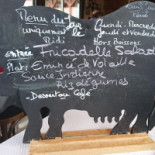 Menu du jour
uniquement le
Midi
Lundi - Mercredi
jeudi et Vendredi
Hors Boissons
entrée Fricadelle Salade
Plats Emincé de Volaille
Sauce Indienne
Riz Légumes
- Dessert ou Café